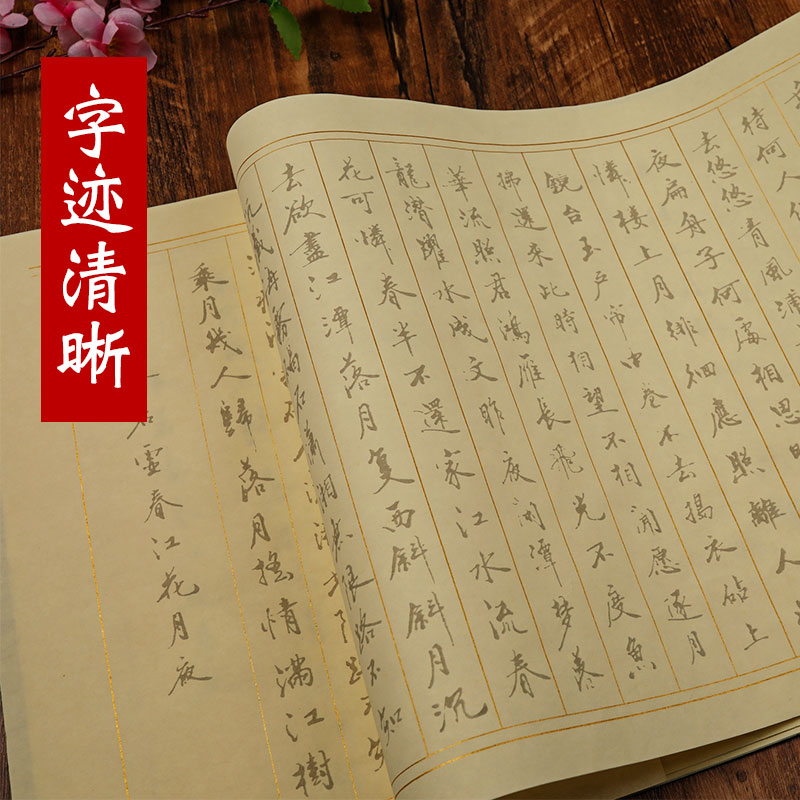 字迹清晰
待何人
去悠悠青楓浦
夜扁舟子何處相思明
憐樓上月徘徊應照離人
鏡台玉戶帘中卷不去搗衣砧上
拂還來此時相望不相聞愿逐月
華流照君鴻雁長飛光不度魚
龍潛躍水成文昨夜閑潭夢落
花可憐春半不還家江水流春
去欲盡江潭落月复西斜斜月沉
沉藏海霧碣石瀟湘無限路不知
乘月幾人歸落月搖情滿江樹
若虛春江花月夜